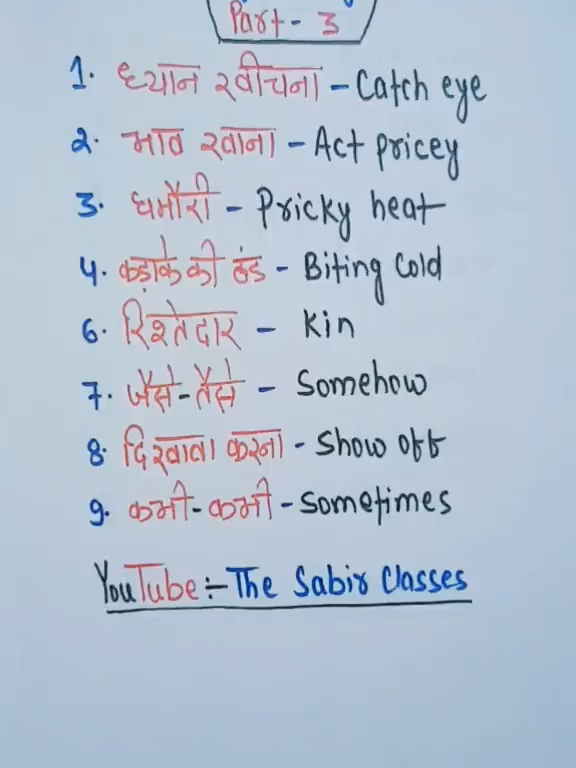 Part - 3
1. ध्यान खींचना - Catch eye
2. भाव खाना - Act pricey
3. घमौरी - Pricky heat
4. कड़ाके की ठंड - Biting Cold
6. रिश्तेदार - Kin
7. जैसे-तैसे - Somehow
8. दिखावा करना - Show off
9. कभी-कभी - Sometimes
YouTube :- The Sabir Classes